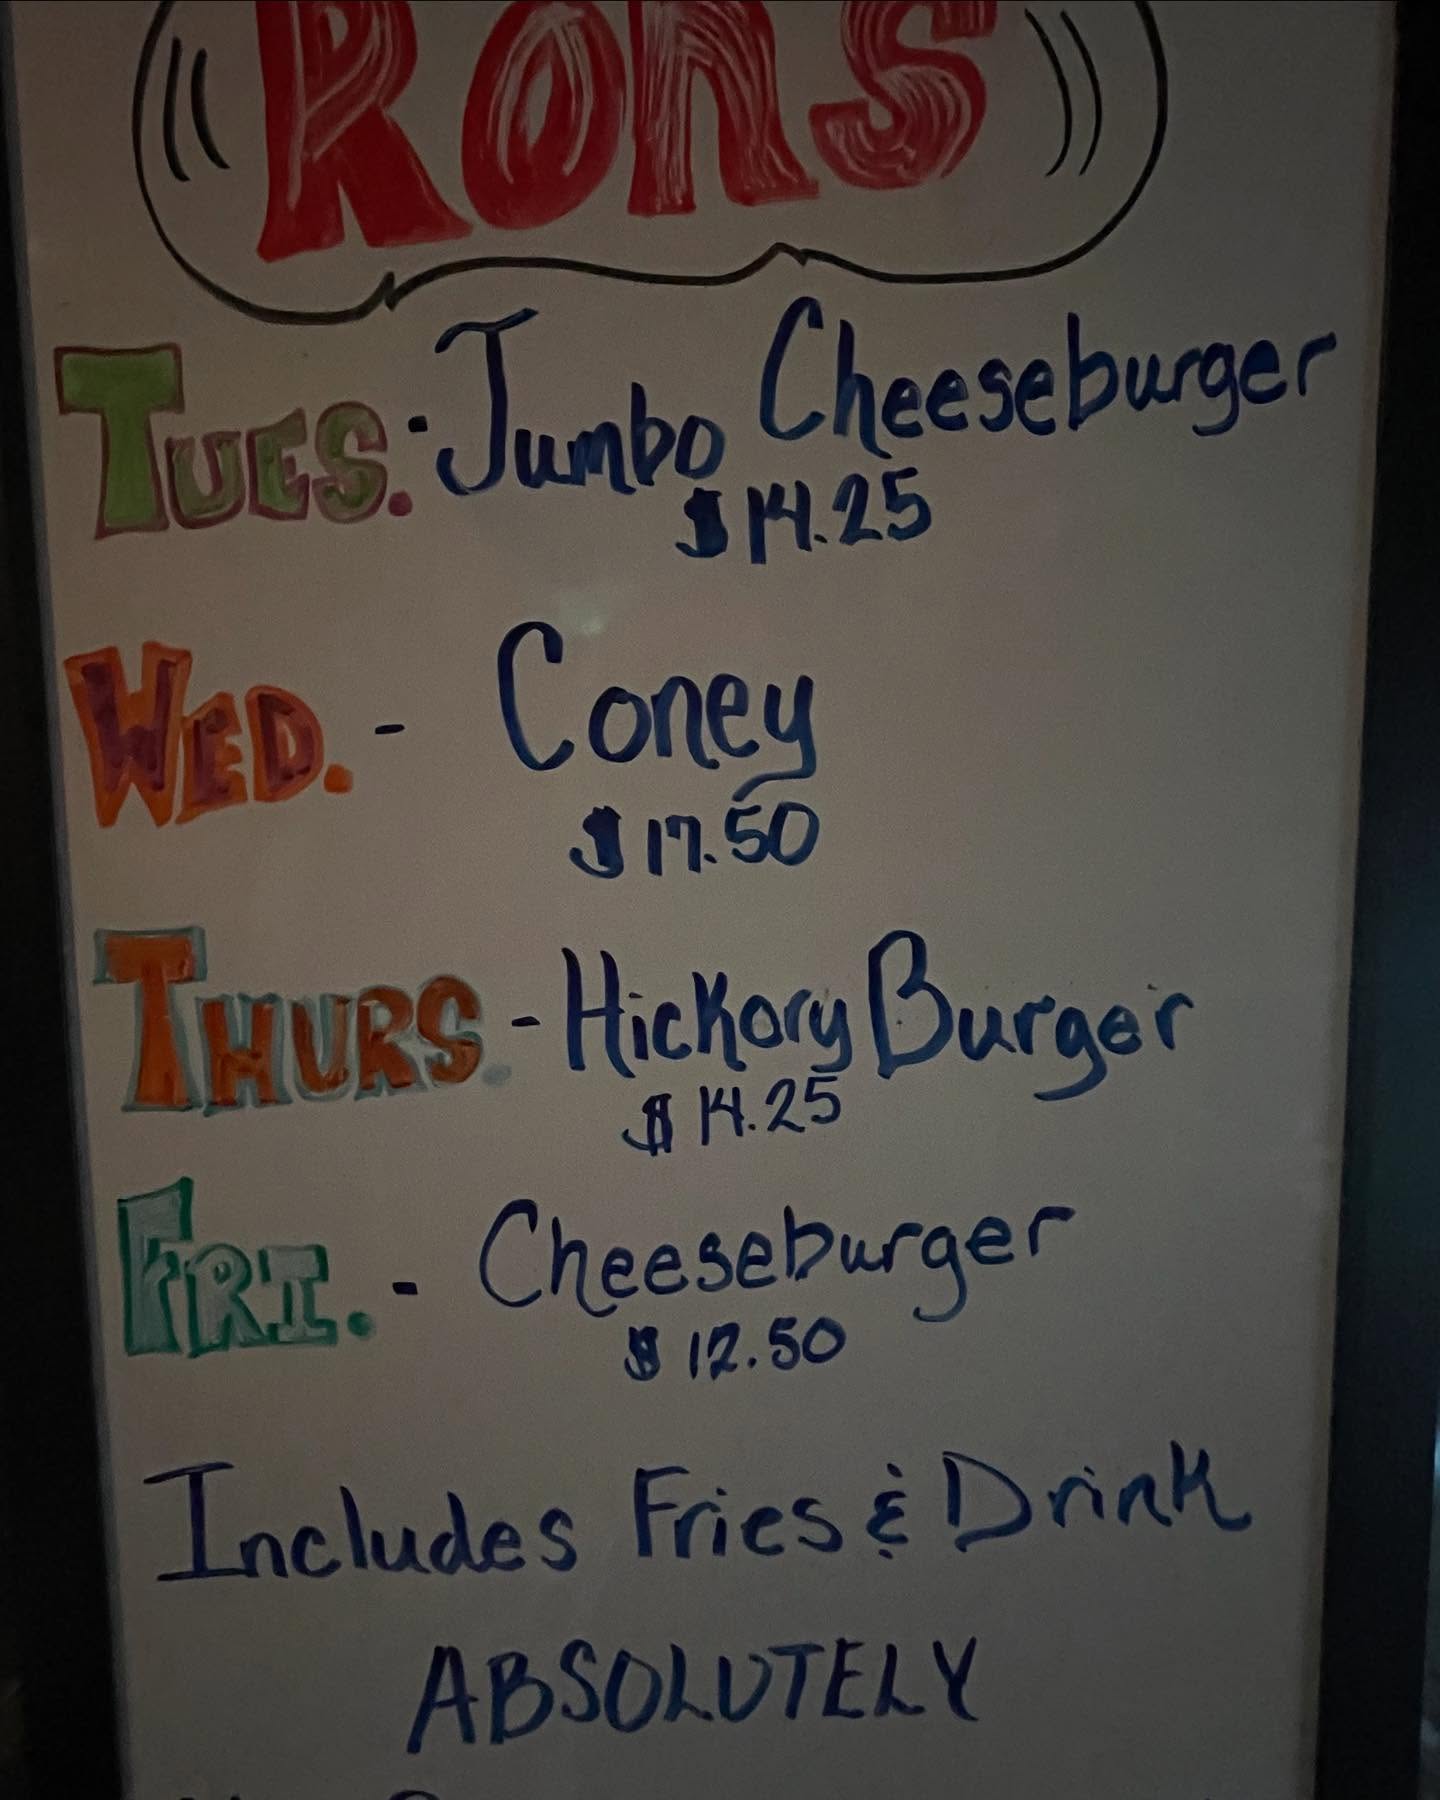 RONS
TUES. - Jumbo Cheeseburger
$14.25
WED. - Coney
$17.50
THURS. - Hickory Burger
$14.25
FRI. - Cheeseburger
$12.50
Includes Fries & Drink
ABSOLUTELY